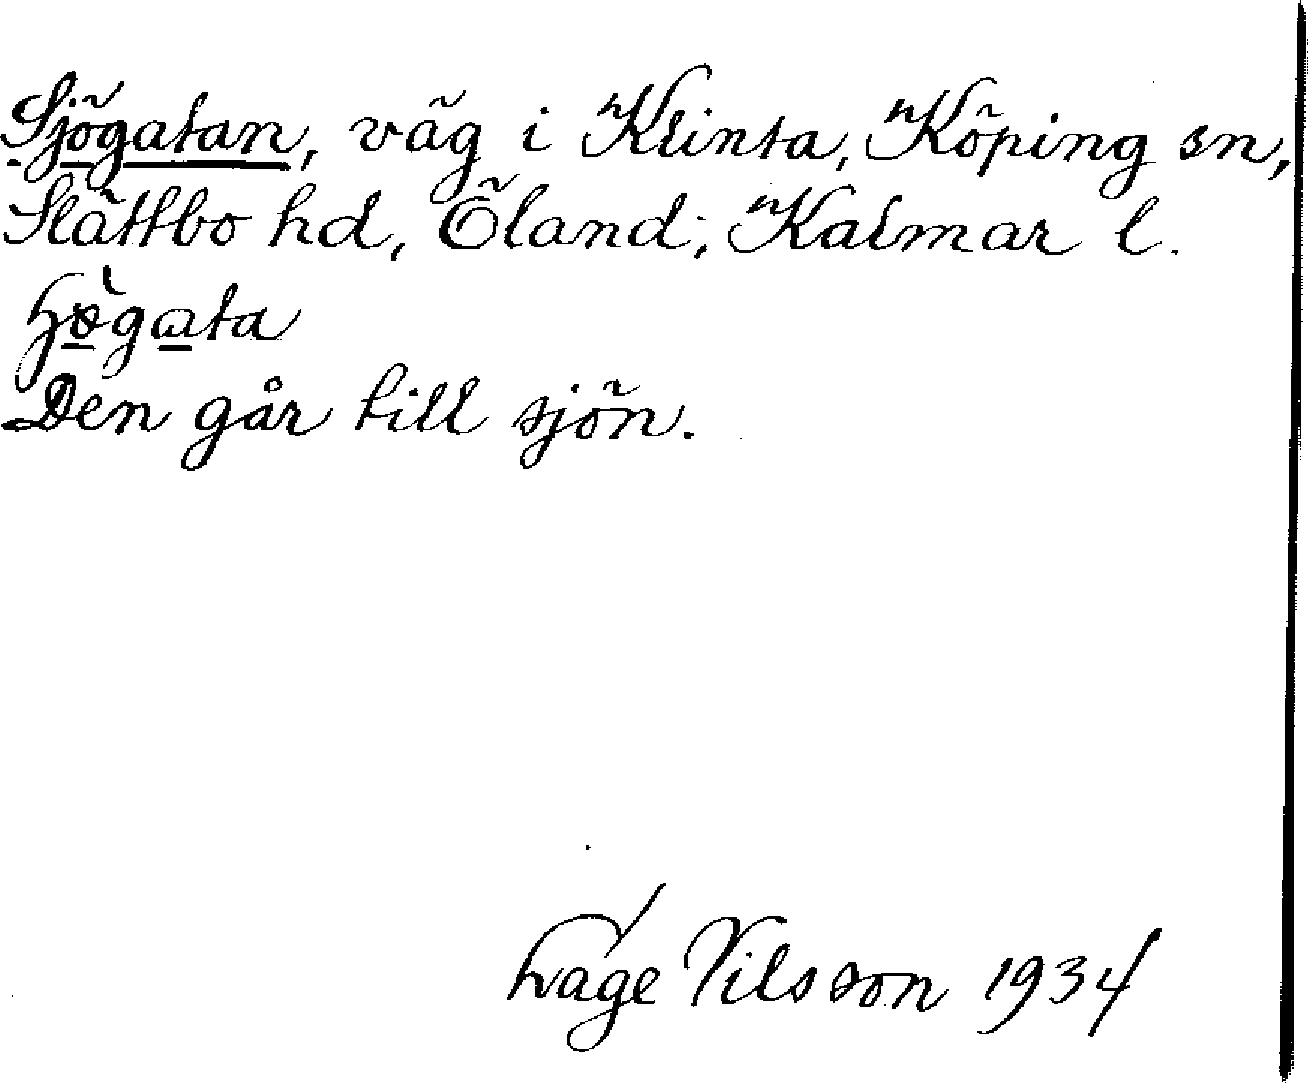 Sjögatan, väg i Klinta, Köping sn,
Slättbo hd, Öland; Kalmar l.
Den går till sjön.
Lage Nilsson 1934